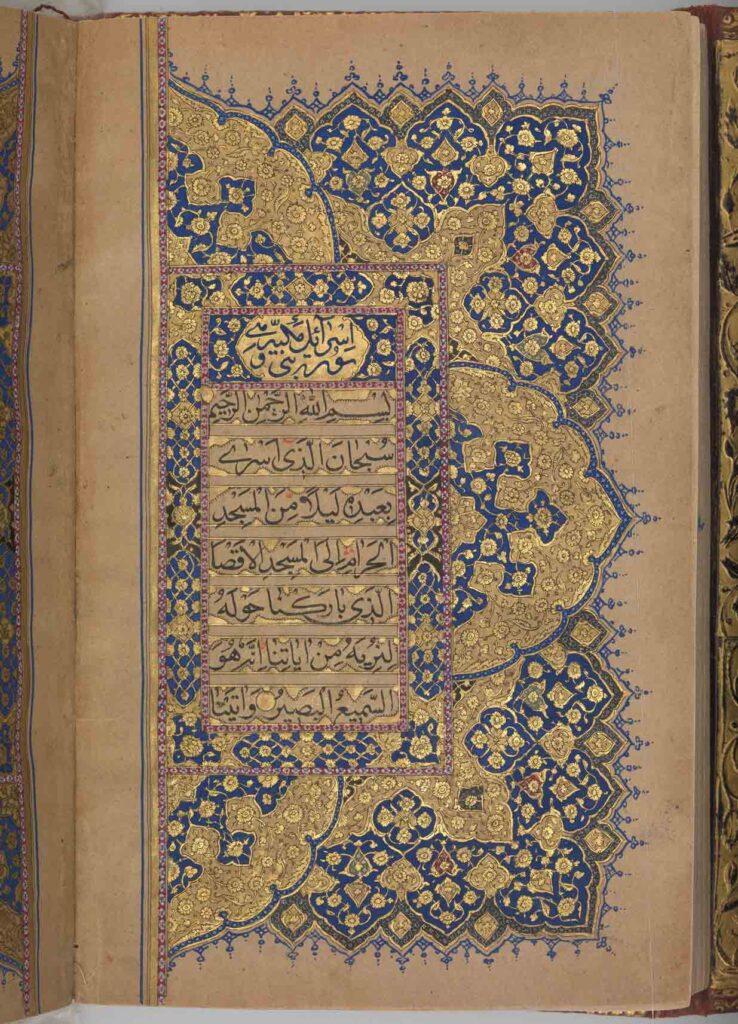 سورة بني اسرائيل مكية
بسم الله الرحمن الرحيم
سبحان الذي اسرى
بعبده ليلا من المسجد
الحرام الى المسجد الاقصا
الذي باركنا حوله
لنريه من اياتنا انه هو
السميع البصير واتينا